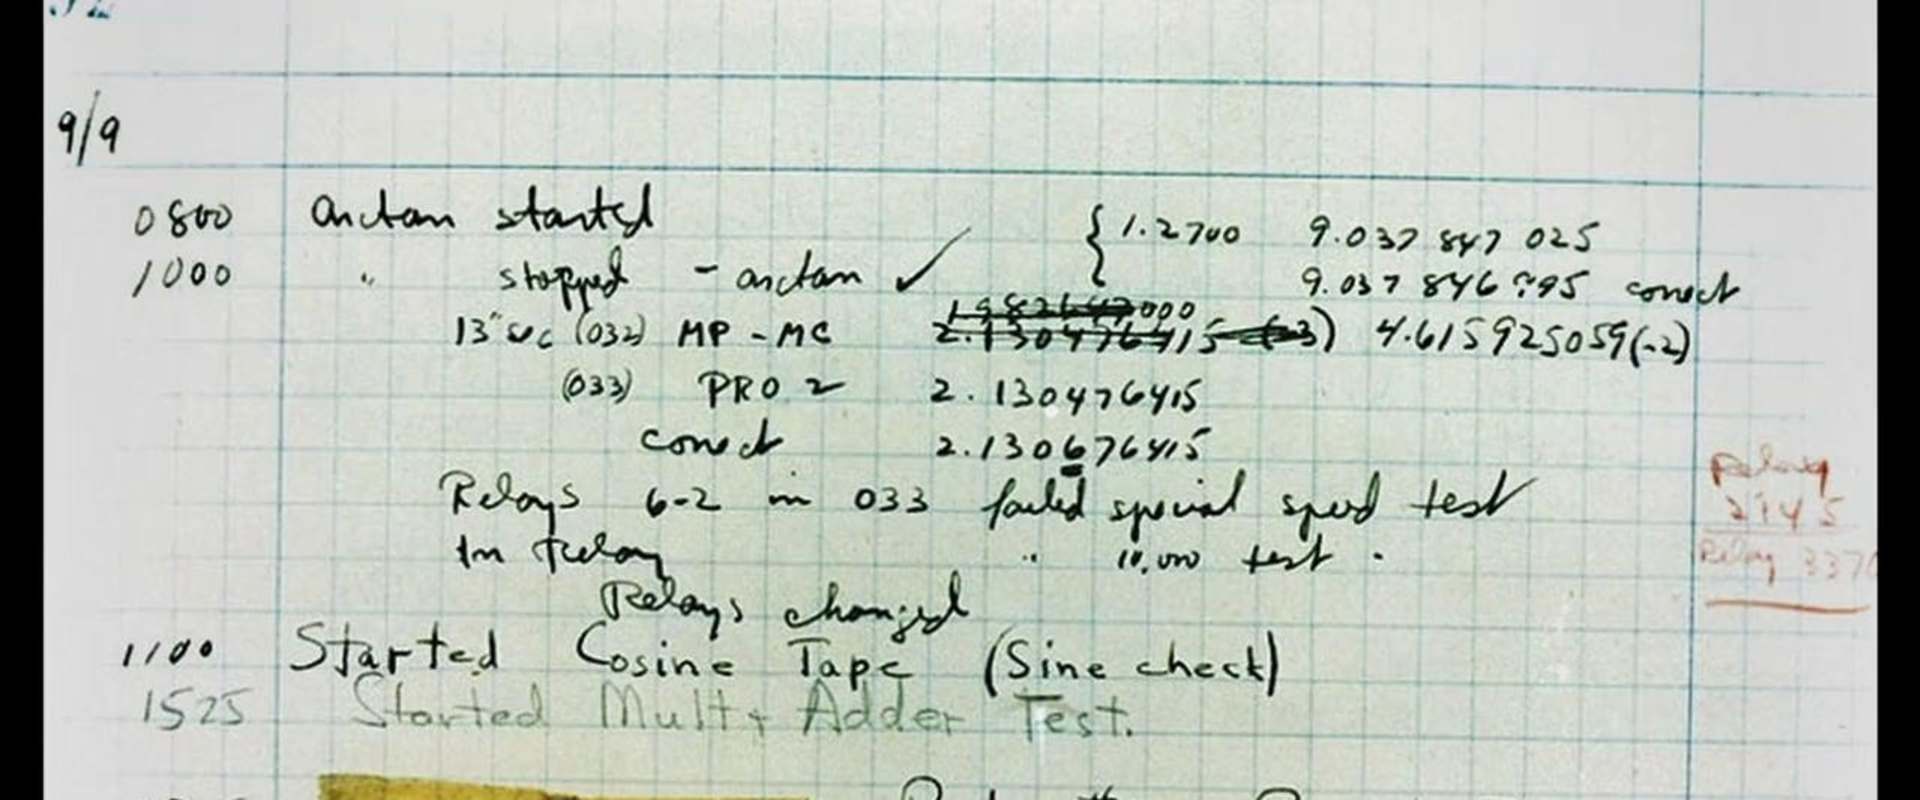 9/9
0800 arctan started { 1.2700 9.037 847 025
1000 " stopped - arctan ✓ 9.037 846 995 correct
000
13" sec (032) MP - MC 2.130476415 (-3) 4.615925059(-2)
(033) PRO 2 2.130476415
correct 2.130676415
Relays 6-2 in 033 failed special speed test
In relay " 10,000 test .
Relays changed
Relay
2145
Relay 3370
1100 Started Cosine Tape (Sine check)
1525 Started Mult + Adder Test.